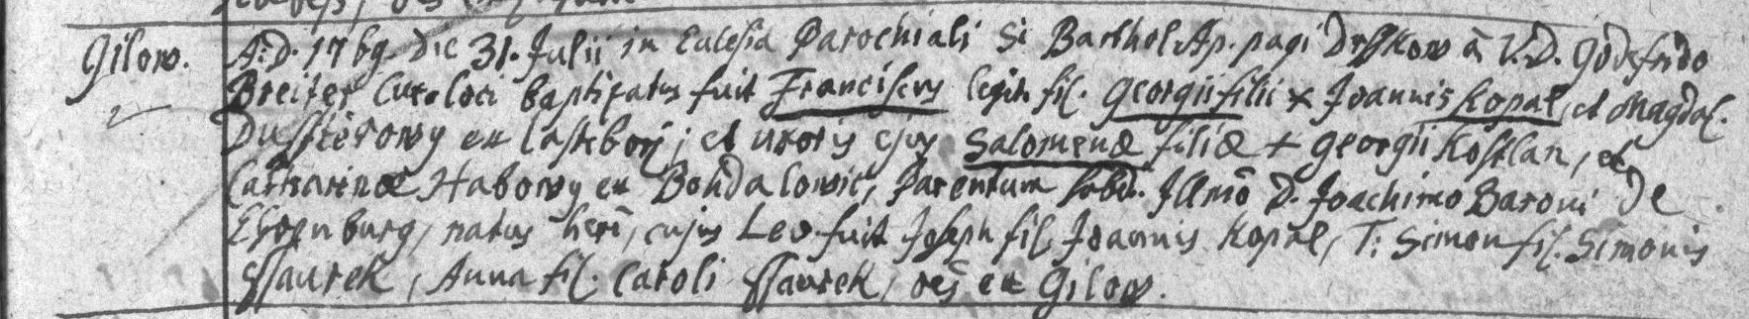 Gilow.
A: D. 1769 die 31. Julii in Eclesia Parochiali S: Barthol. Ap. pagi Drsskow â V. D. Godefrido
Breiter Cur. loci baptizatus fuit Franciscus legit. fil. Georgii filii + Joannis Kopal et Magdal.
ex Lasstborj; et uxoris ejus Salomenæ filiæ + Georgii Kostlan, et
Catharinæ Habowy ex Bohdalowic, Parentum subd. Illmô D. Joachimo Baroni de
natus heri, cujus Lev. fuit Joseph fil. Joannis Kopal, T: Simon fil. Simonis
Ssaurek, Anna fil. Caroli Ssaurek, oēs ex Gilow.